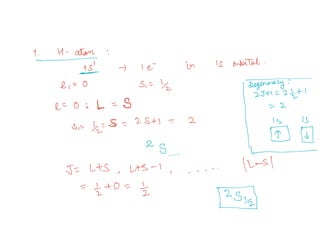 1. H-atom :
1s¹ → 1e⁻ in 1s orbital.
l₁=0 S₁= 1/2
l=0 ; L = S
S₁= 1/2 = S = 2S+1 = 2
2 S
J= L+S , L+S-1 , ..... |L-S|
= 1/2 + 0 = 1/2
2 S 1/2
degeneracy :
2J+1 = 2 1/2 +1
= 2
1s 1s
↑ ↓